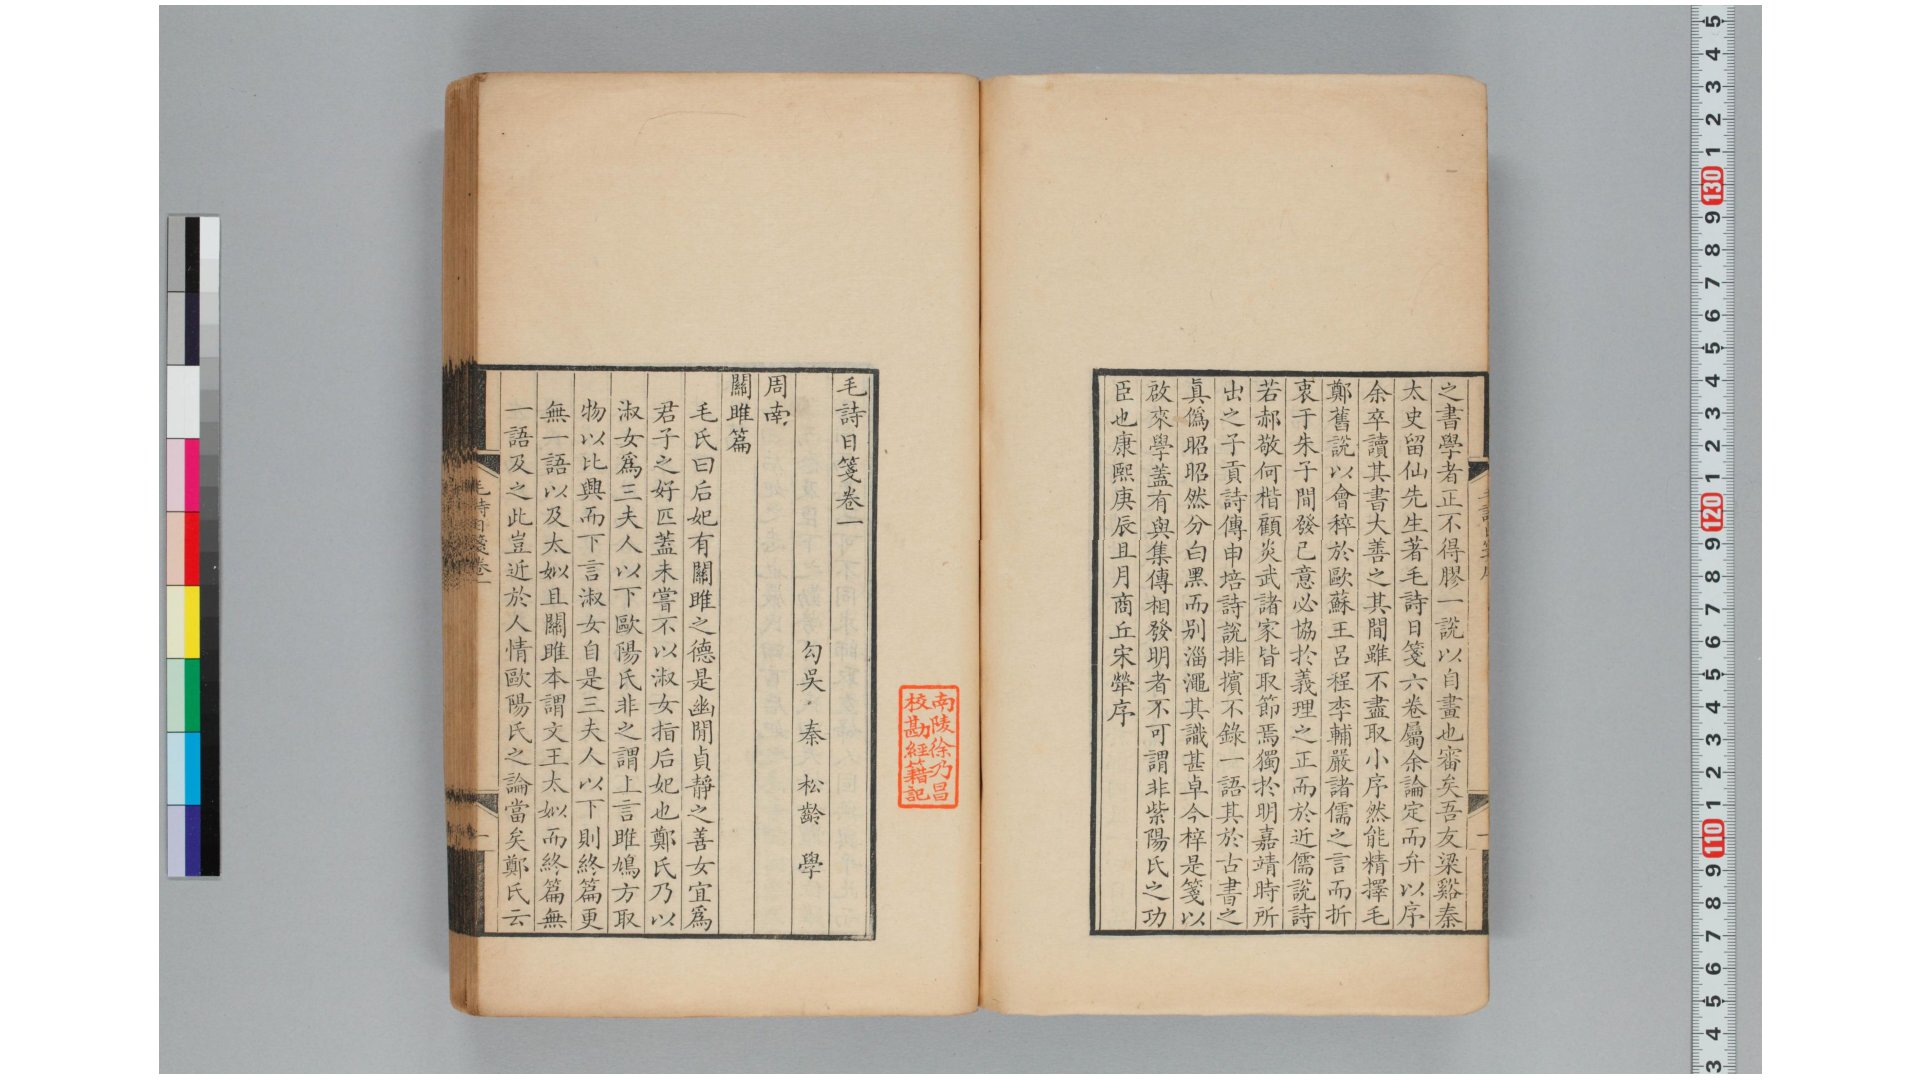 之書學者正不得膠一說以自畫也審矣吾友梁谿秦
太史留仙先生著毛詩日箋六卷屬余論定而弁以序
余卒讀其書大善之其間雖不盡取小序然能精擇毛
鄭舊說以會稡於歐蘇王呂程李輔嚴諸儒之言而折
衷于朱子間發己意必協於義理之正而於近儒說詩
若郝敬何楷顧炎武諸家皆取節焉獨於明嘉靖時所
出之子貢詩傳申培詩說排擯不錄一語其於古書之
眞僞昭昭然分白黑而别淄澠其識甚卓今梓是箋以
啟來學蓋有與集傳相發明者不可謂非紫陽氏之功
臣也康熙庚辰且月商丘宋犖序
南陵徐乃昌
校勘經籍記
毛詩日箋卷一
勾吳秦松齡學
周南
關雎篇
毛氏曰后妃有關雎之德是幽閒貞靜之善女宜爲
君子之好匹蓋未嘗不以淑女指后妃也鄭氏乃以
淑女爲三夫人以下歐陽氏非之謂上言雎鳩方取
物以比興而下言淑女自是三夫人以下則終篇更
無一語以及太姒且關雎本謂文王太姒而終篇無
一語及之此豈近於人情歐陽氏之論當矣鄭氏云
毛詩日箋卷一
一
5
4
3
2
1
130
9
8
7
6
5
4
3
2
1
120
9
8
7
6
5
4
3
2
1
110
9
8
7
6
5
4
3